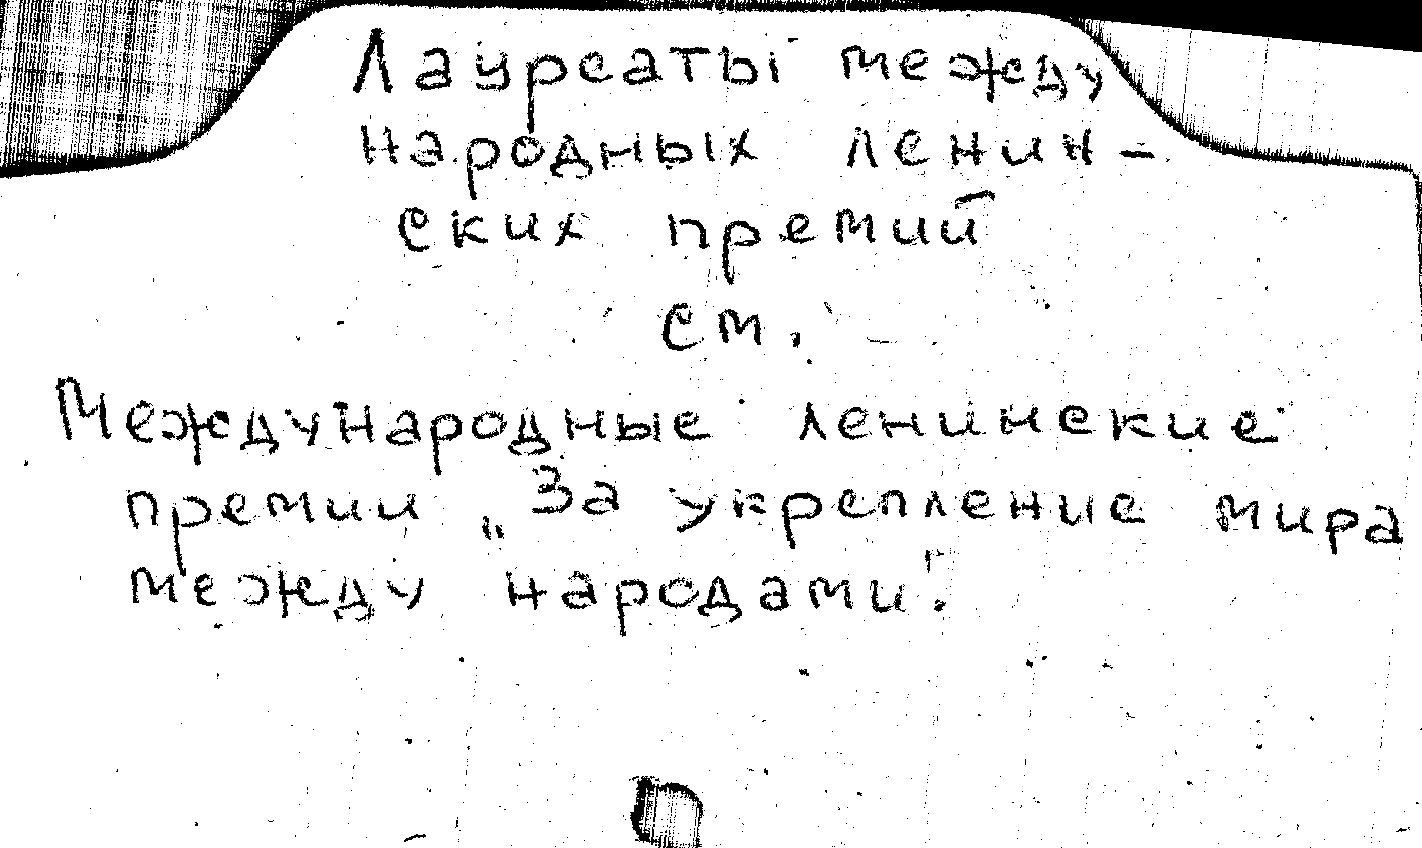 Лауреаты между
народных ленин-
ских премий
см.
Международные ленинские
премии „За укрепление мира
между народами".